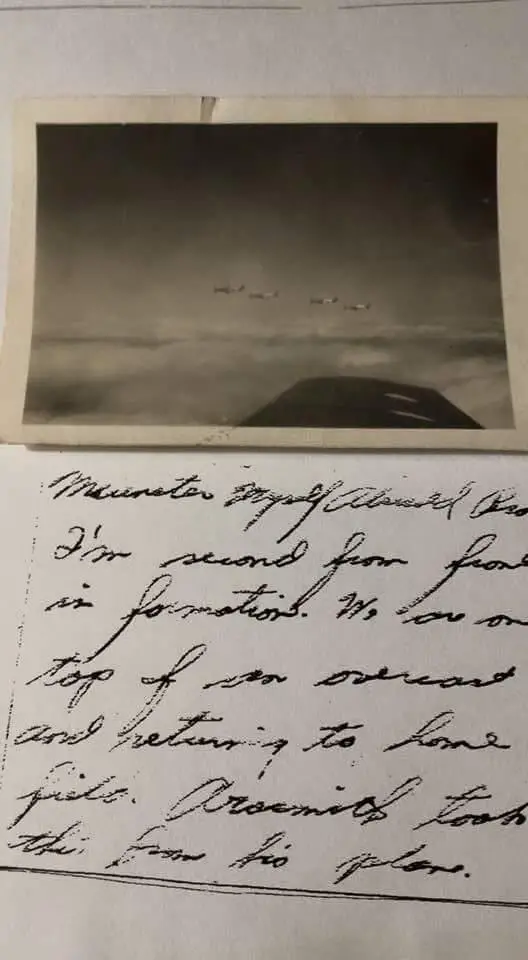 Myself
I'm second from front
in formation. We are on
top of an overcast
and returning to home
field. Arsmith took
this from his plane.